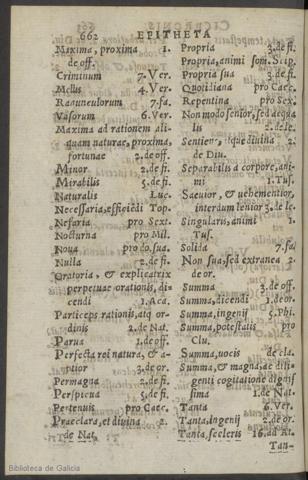 662 EPITHETA
Maxima, proxima 1.
de off.
Criminum 7. Ver.
Mellis 4. Ver.
Ranunculorum 7. fa.
Vasorum 6. Ver.
Maxima ad rationem ali-
quam naturae, proxima,
fortunae 2. de off.
Minor 2. de fi.
Mirabilis 5. de fi.
Naturalis Luc.
Necessaria, efficiēdi Top.
Nefaria pro Sext.
Nocturna pro Mil.
Noua pro do. sua.
Nulla 2. de fi.
Oratoria, & explicatrix
perpetuae orationis, di-
cendi 1. Aca.
Particeps rationis, atq; or-
dinis 2. de Nat.
Parua 1. de off.
Perfecta rei natura, & a-
ptior 3. de or.
Permagna 2. de fi.
Perspicua 5. de fi.
Pertenuis pro Caec.
Praeclara, et diuina 2.
de Nat.
Propria 3. de fi.
Propria, animi som. Scip.
Propria sua 3. de fi.
Quotidiana pro Caec.
Repentina pro Sex.
Non modo senior, sed aequa
lis 2. de le.
Sentiens, itque diuina 2.
de Diu.
Separabilis a corpore, ani-
mi 1. Tus.
Saeuior, & uehementior,
interdum lenior 3. de le.
Singularis, animi 1.
Tus.
Solida 7. fa
Non sua, sed extranea 2.
de or.
Summa 3. de off.
Summa, dicendi 1. de or.
Summa, ingenij 5. Phi.
Summa, potestatis pro
Clu.
Summa, uocis de cla.
Summa, & magna, ac dili-
genti cogitatione dignis
sima 1. de Nat.
Tanta 6. Ver.
Tanta, ingenij 2. de or.
Tanta, sceleris 16. ad At.
Tan-
Biblioteca de Galicia